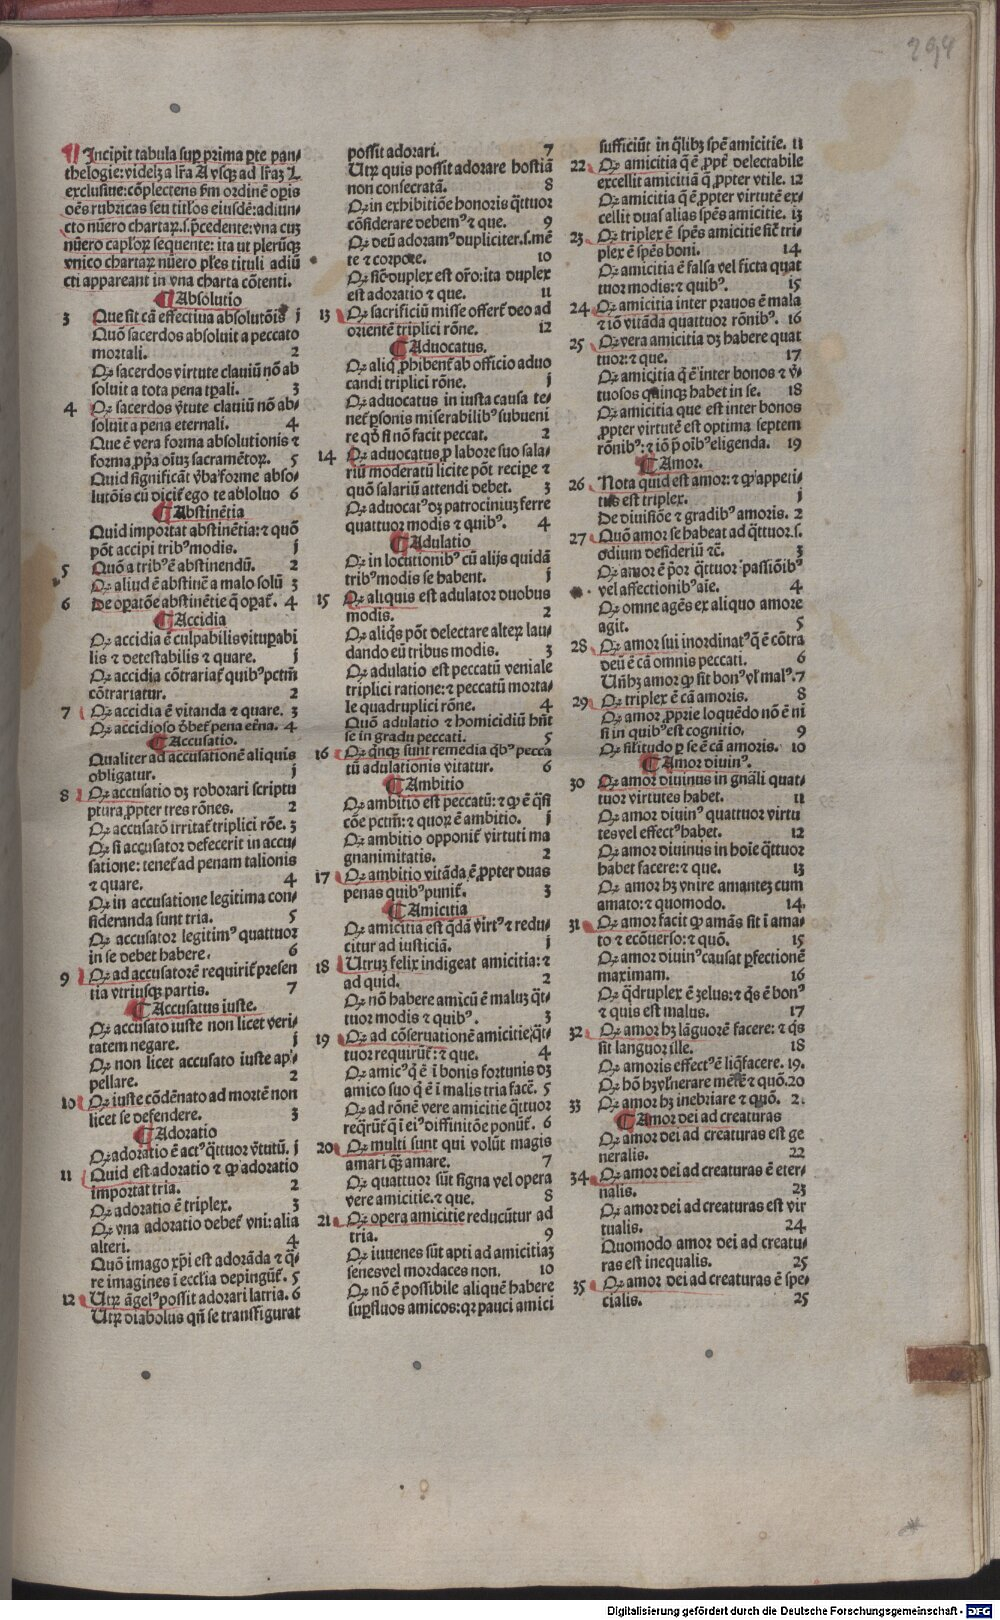 294
¶ Incipit tabula suꝑ prima ꝑte pan/
thelogie: videlꝫ a lr̃a A vsqꝫ ad lr̃aꝫ L
exclusiue: cõplectens ẜm ordinẽ oꝑis
oẽs rubricas seu titl'os eiusdẽ: adiun/
cto nũero chartaꝝ.s.p̃cedente: vna cuꝫ
nũero capl'oꝝ sequente: ita ut pleruqꝫ
vnico chartaꝝ nũero pl'es tituli adiũ
cti appareant in vna charta cõtenti.
¶ Absolutio
3 Que sit cã effectiua absolutõis j
Quõ sacerdos absoluit a peccato
mortali. 2
Qꝫ sacerdos virtute clauiũ nõ ab
soluit a tota pena tꝑali. 3
4 Qꝫ sacerdos ṽtute clauiũ nõ ab/
soluit a pena eternali. 4
Que ẽ vera forma absolutionis ⁊
forma ꝓp̃a oĩuꝫ sacramẽtoꝝ. 5
Quid significãt ṽba forme abso/
lutõis cũ dicit̃ ego te absoluo 6
¶ Abstinẽtia
Quid importat abstinẽtia: ⁊ quõ
põt accipi tribꝰ modis. j
5 Quõ a tribꝰ ẽ abstinendũ. 2
Qꝫ aliud ẽ abstinẽ a malo solũ 3
6 De oꝑatõe abstinẽtie q̃ oꝑat̃. 4
¶ Accidia
Qꝫ accidia ẽ culpabilis vituꝑabi
lis ⁊ detestabilis ⁊ quare. j
Qꝫ accidia cõtrariat̃ quibꝰ pctm̃
cõtrariatur. 2
7 Qꝫ accidia ẽ vitanda ⁊ quare. 3
Qꝫ accidioso ꝺ̃bet̃ pena etñna. 4
¶ Accusatio.
Qualiter ad accusationẽ aliquis
obligatur. j
8 Qꝫ accusatio dꝫ roborari scriptu
ptura ꝓpter tres rõnes. 2
Qꝫ accusatõ irritat̃ triplici rõe. 3
Qꝫ si accusator defecerit in accu/
satione: tenet̃ ad penam talionis
⁊ quare. 4
Qꝫ in accusatione legitima con/
sideranda sunt tria. 5
Qꝫ accusator legitimꝰ quattuor
in se debet habere. 6
9 Qꝫ ad accusatorẽ requirit̃ presen
tia vtriusqꝫ partis. 7
¶ Accusatus iuste.
Qꝫ accusato iuste non licet veri/
tatem negare. j
Qꝫ non licet accusato iuste ap/
pellare. 2
10 Qꝫ iuste cõdẽnato ad mortẽ non
licet se defendere. 3
¶ Adoratio
Qꝫ adoratio ẽ actꝰ q̃ttuor ṽtutũ. j
11 Quid est adoratio ⁊ ꝙ adoratio
importat tria. 2
Qꝫ adoratio ẽ triplex. 3
Qꝫ vna adoratio debet̃ vni: alia
alteri. 4
Quõ imago xp̃i est adorãda ⁊ q̃/
re imagines ĩ eccl'ia depingũt̃. 5
12 Utꝝ ãgelꝰ possit adorari latria. 6
Utꝝ diabolus qñ se transfigurat
possit adorari. 7
Utꝝ quis possit adorare hostiã
non consecratã. 8
Qꝫ in exhibitiõe honoris q̃ttuor
cõsiderare debemꝰ ⁊ que. 9
Qꝫ deũ adoramꝰ dupliciter.s.mẽ
te ⁊ corpore. 10
Qꝫ sic̃ duplex est or̃o: ita duplex
est adoratio ⁊ que. 11
13 Qꝫ sacrificiũ misse offert̃ deo ad
orientẽ triplici rõne. 12
¶ Aduocatus.
Qꝫ aliq̃ ꝓhibent̃ ab officio aduo
candi triplici rõne. j
Qꝫ aduocatus in iusta causa te/
net̃ ꝑsonis miserabilibꝰ subueni
re qð si nõ facit peccat. 2
14 Qꝫ aduocatus ꝓ labore suo sala/
riũ moderatũ licite põt reciꝑe ⁊
quõ salariũ attendi debet. 3
Qꝫ aduocatꝰ dꝫ patrociniuꝫ ferre
quattuor modis ⁊ quibꝰ. 4
¶ Adulatio
Qꝫ in locutionibꝰ cũ alijs quidã
tribꝰ modis se habent. j
15 Qꝫ aliquis est adulator duobus
modis. 2
Qꝫ aliq̃s põt delectare alteꝝ lau/
dando eũ tribus modis. 3
Qꝫ adulatio est peccatũ veniale
triplici ratione: ⁊ peccatũ morta/
le quadruplici rõne. 4
Quõ adulatio ⁊ homicidiũ hñt
se in gradu peccati. 5
16 Qꝫ q̃nqꝫ sunt remedia q̃bꝰ pecca
tũ adulationis vitatur. 6
¶ Ambitio
Qꝫ ambitio est peccatũ: ⁊ ꝙ ẽ q̃si
cõe pctm̃: ⁊ quoꝝ ẽ ambitio. j
Qꝫ ambitio opponit̃ virtuti ma
gnanimitatis. 2
17 Qꝫ ambitio vitãda ẽ ꝓpter duas
penas quibꝰ punit̃. 3
¶ Amicitia
Qꝫ amicitia est q̃dã ṽirtꝰ ⁊ redu/
citur ad iusticiã. j
18 Utruꝫ felix indigeat amicitia: ⁊
ad quid. 2
Qꝫ nõ habere amicũ ẽ maluꝫ q̃t/
tuor modis ⁊ quibꝰ. 3
19 Qꝫ ad cõseruationẽ amicitie q̃t/
tuor requirũt̃: ⁊ que. 4
Qꝫ amicꝰ q̃ ẽ ĩ bonis fortunis dꝫ
amico suo q̃ ẽ ĩ malis tria facẽ. 5
Qꝫ ad rõnẽ vere amicitie q̃ttuor
req̃rũt̃ q̃ ĩ eiꝰ diffinitõe ponũt̃. 6
20 Qꝫ multi sunt qui volũt magis
amari q̃ꝫ amare. 7
Qꝫ quattuor sũt signa vel opera
vere amicitie. ⁊ que. 8
21 Qꝫ opera amicitie reducũtur ad
tria. 9
Qꝫ iuuenes sũt apti ad amicitiaꝫ
senes vel mordaces non. 10
Qꝫ nõ ẽ possibile aliquẽ habere
suꝑfluos amicos: qꝛ pauci amici
sufficiũt in q̃libꝫ spẽ amicitie. 11
22 Qꝫ amicitia q̃ ẽ ꝓpt̃ delectabile
excellit amicitiã q̃ ꝓpter vtile. 12
Qꝫ amicitia q̃ ẽ ꝓpter virtutẽ ex/
cellit duas alias spẽs amicitie. 13
23 Qꝫ triplex ẽ spẽs amicitie sic̃ tri/
plex ẽ spẽs boni. 14
Qꝫ amicitia ẽ falsa vel ficta quat
tuor modis: ⁊ quibꝰ. 15
24 Qꝫ amicitia inter prauos ẽ mala
⁊ iõ vitãda quattuor rõnibꝰ. 16
25 Qꝫ vera amicitia dꝫ habere quat
tuor: ⁊ que. 17
Qꝫ amicitia q̃ ẽ inter bonos ⁊ ṽ/
tuosos quinqꝫ habet in se. 18
Qꝫ amicitia que est inter bonos
ꝓpter virtutẽ est optima septem
rõnibꝰ: ⁊ iõ p̃ oĩbꝰ eligenda. 19
¶ Amor.
26 Nota quid est amor: ⁊ ꝙ appeti/
tus est triplex. j
De diuisiõe ⁊ gradibꝰ amoris. 2
27 Quõ amor se habeat ad q̃ttuor.s.
odium desideriũ ⁊c̃. 3
Qꝫ amor ẽ p̃or q̃ttuor passiõibꝰ
vel affectionibꝰ aĩe. 4
Qꝫ omne agẽs ex aliquo amore
agit. 5
28 Qꝫ amor sui inordinatꝰ q̃ ẽ cõtra
deũ ẽ cã omnis peccati. 6
Uñ hꝫ amor ꝙ sit bonꝰ vl' malꝰ. 7
29 Qꝫ triplex ẽ cã amoris. 8
Qꝫ amor ꝓprie loquẽdo nõ ẽ ni
si in quibꝰ est cognitio. 9
Qꝫ sil'itudo ꝑ se ẽ cã amoris. 10
¶ Amor diuinꝰ.
30 Qꝫ amor diuinus in gñali quat/
tuor virtutes habet. 11
Qꝫ amor diuinꝰ quattuor virtu
tes vel effectꝰ habet. 12
Qꝫ amor diuinus in hoĩe q̃ttuor
habet facere: ⁊ que. 13
Qꝫ amor hꝫ vnire amanteꝫ cum
amato: ⁊ quomodo. 14
31 Qꝫ amor facit ꝙ amãs sit ĩ ama/
to ⁊ ecõuerso: ⁊ quõ. 15
Qꝫ amor diuinꝰ causat ꝑfectionẽ
maximam. 16
Qꝫ q̃druplex ẽ zelus: ⁊ q̃s ẽ bonꝰ
⁊ quis est malus. 17
32 Qꝫ amor hꝫ lãguorẽ facere: ⁊ q̃s
sit languor ille. 18
Qꝫ amoris effectꝰ ẽ liq̃facere. 19.
Qꝫ hõ hꝫ vl'nerare mẽtẽ ⁊ quõ. 20
33 Qꝫ amor hꝫ inebriare ⁊ quõ. 2.
¶ Amor dei ad creaturas
Qꝫ amor dei ad creaturas est ge
neralis. 22
34 Qꝫ amor dei ad creaturas ẽ eter/
nalis. 23
Qꝫ amor dei ad creaturas est vir
tualis. 24
Quomodo amor dei ad creatu/
ras est inequalis. 25
35 Qꝫ amor dei ad creaturas ẽ spe/
cialis. 25
Digitalisierung gefördert durch die Deutsche Forschungsgemeinschaft - DFG